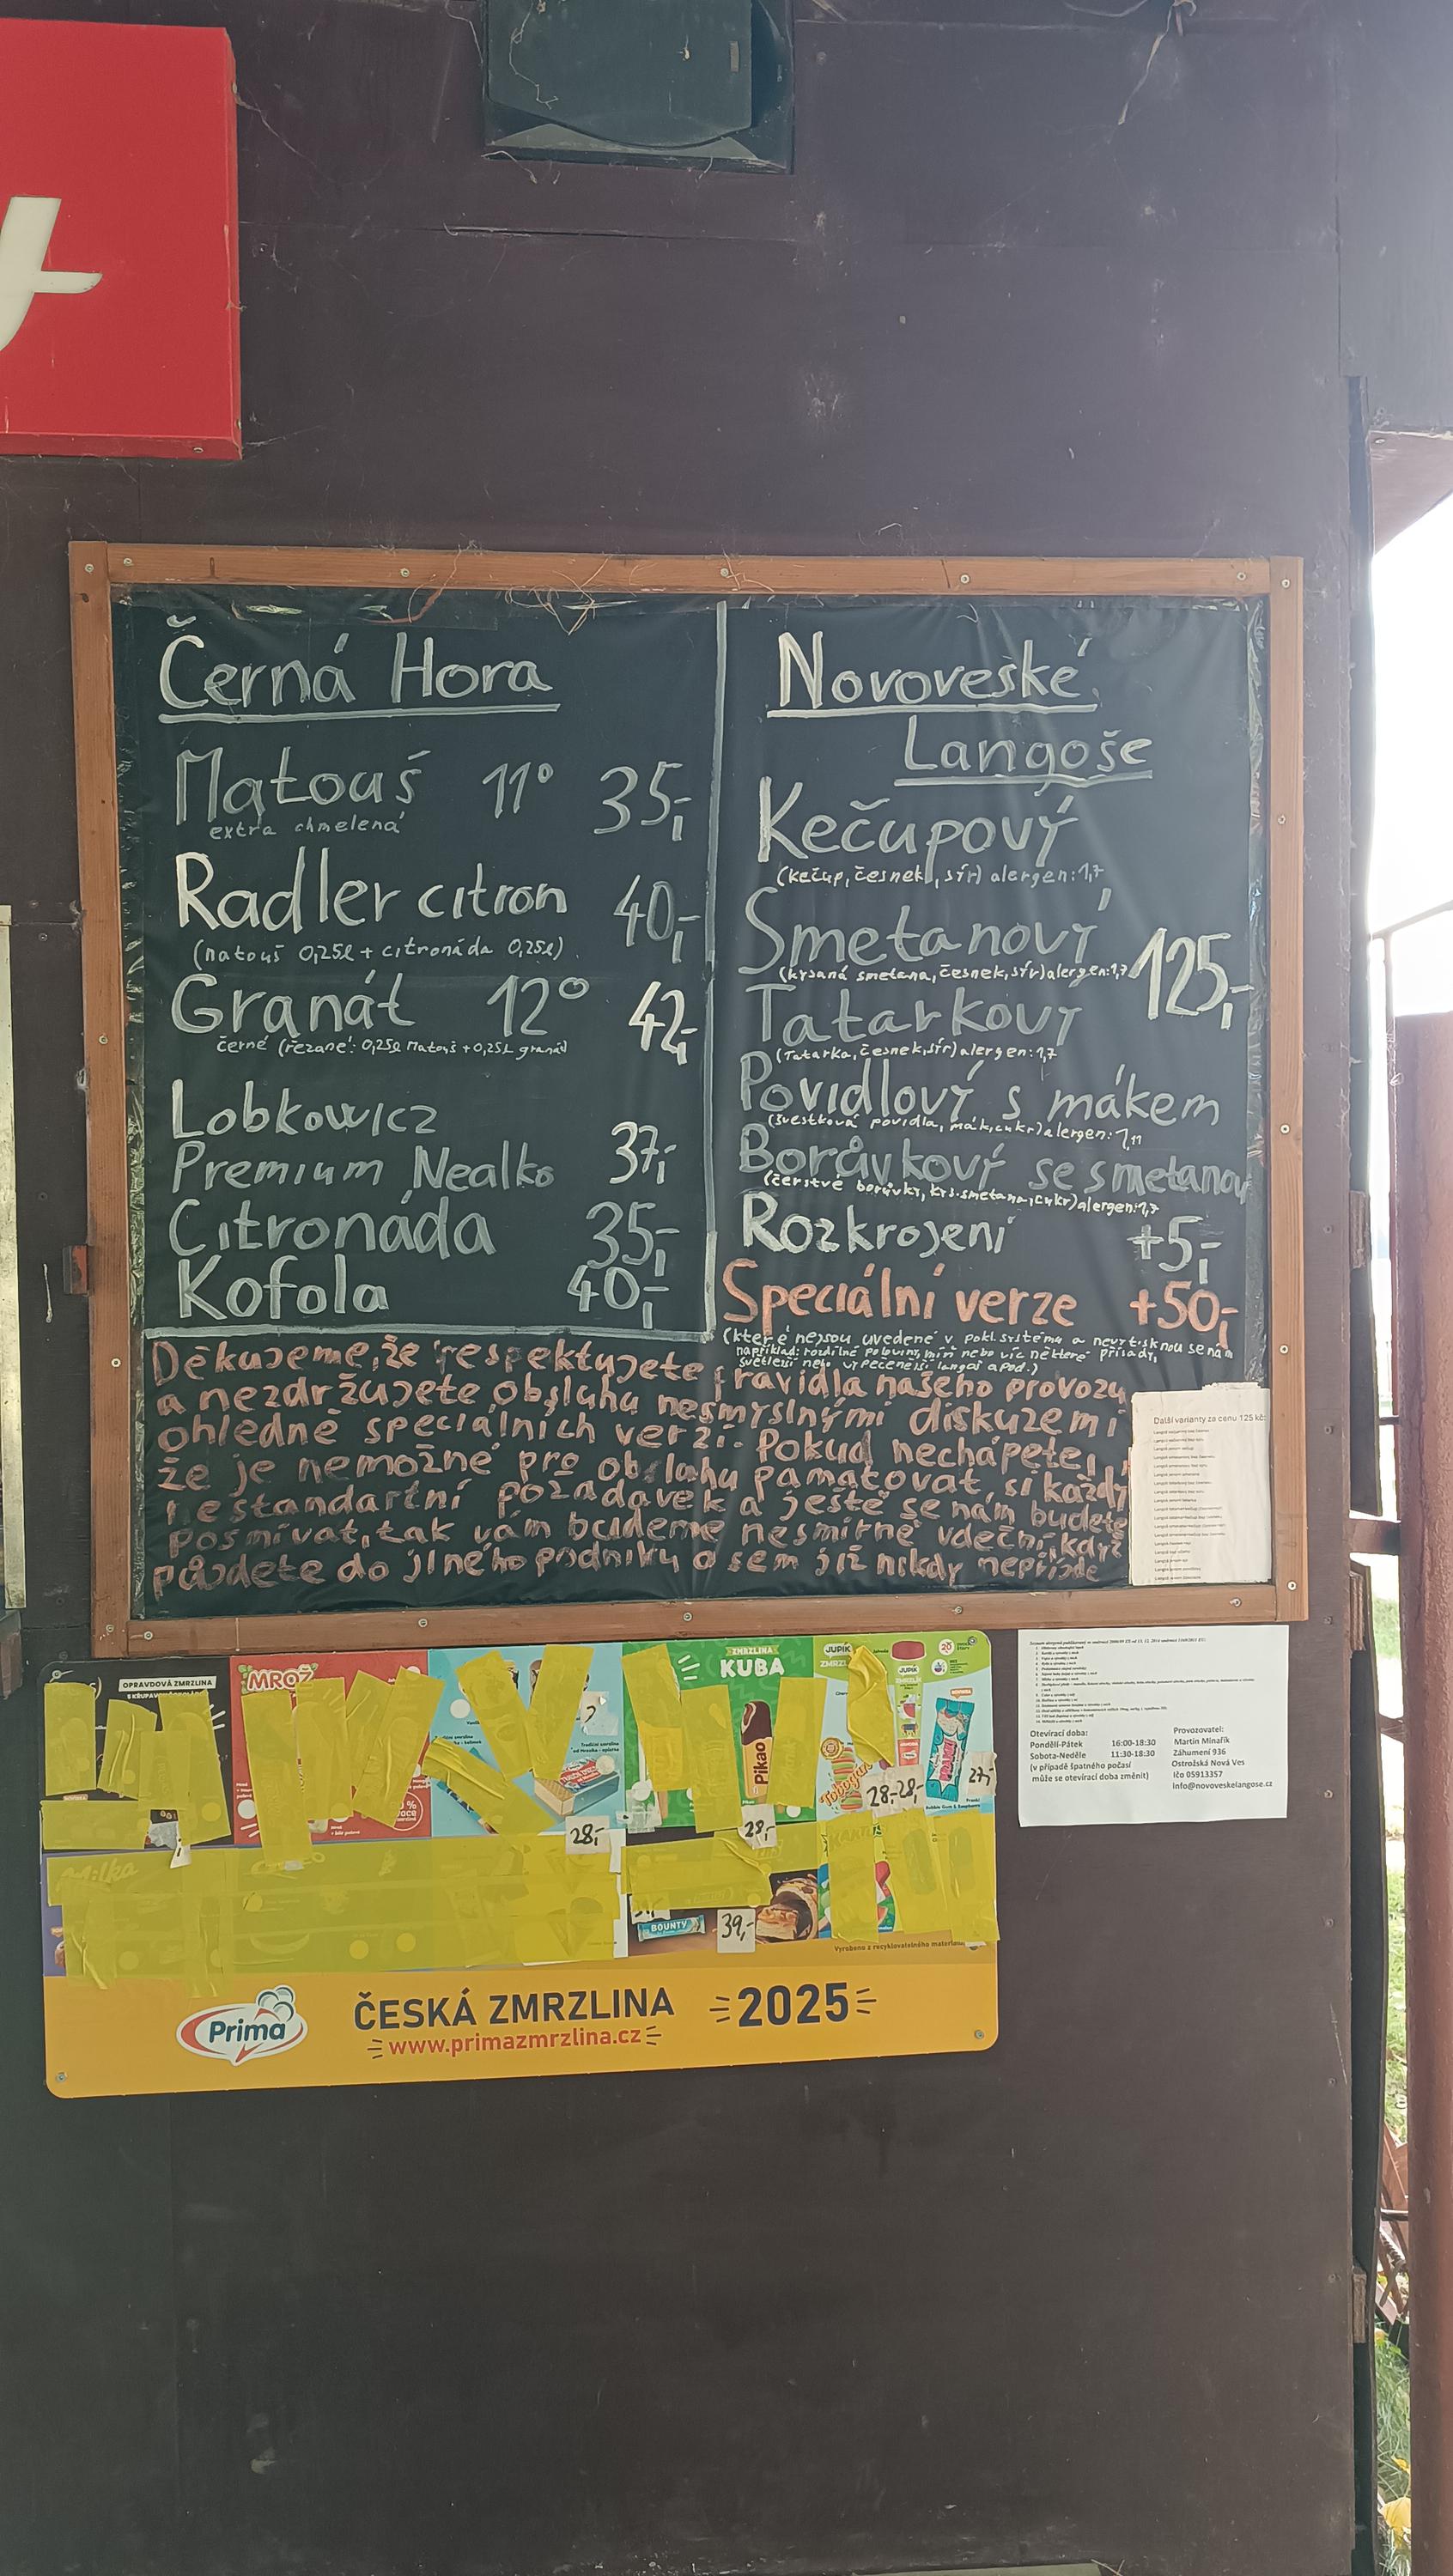 Černá Hora
Matouš 11° 35,-
extra chmelená
Radler citron 40,-
(matouš 0,25l + citronáda 0,25l)
Granát 12° 42,-
černé (řezané: 0,25l Matouš + 0,25l granát)
Lobkowicz
Premium Nealko 37,-
Citronáda 35,-
Kofola 40,-
Novoveské
Langoše
Kečupový
(kečup, česnek, sýr) alergen: 1,7
Smetanový
(kysaná smetana, česnek, sýr) alergen: 1,7
125,-
Tatarkový
(Tatarka, česnek, sýr) alergen: 1,7
Povidlový s mákem
(švestková povidla, mák, cukr) alergen: 1,11
Borůvkový se smetanou
(čerstvé borůvky, krs. smetana, cukr) alergen: 1,7
Rozkrojení +5,-
Speciální verze +50,-
(které nejsou uvedené v pokl. systému a nevytisknou se nám
například: rozdílné poloviny, míň nebo víc některé přísady,
světlejší nebo vypečenější langoš apod.)
Děkujeme, že respektujete pravidla našeho provozu
a nezdržujete obsluhu nesmyslnými diskuzemi
ohledně speciálních verzí. Pokud nechápete,
že je nemožné pro obsluhu pamatovat si každý
nestandartní požadavek a ještě se nám budete
posmívat, tak vám budeme nesmírně vděční, když
půjdete do jiného podniku a sem již nikdy nepřijde
Další varianty za cenu 125 kč:
OPRAVDOVÁ ZMRZLINA
MROŽ
ZMRZLINA
KUBA
JUPÍK
JUPÍK
Pikao
Tobogan
28,-
28,-
28,-
28,-
27,-
Milka
BOUNTY
39,-
Vyrobeno z recyklovatelného materiálu
Prima
ČESKÁ ZMRZLINA 2025
www.primazmrzlina.cz
Otevírací doba:
Pondělí-Pátek 16:00-18:30
Sobota-Neděle 11:30-18:30
(v případě špatného počasí
může se otevírací doba změnit)
Provozovatel:
Martin Minařík
Záhumení 936
Ostrožská Nová Ves
Ičo 05913357
info@novoveskelangose.cz